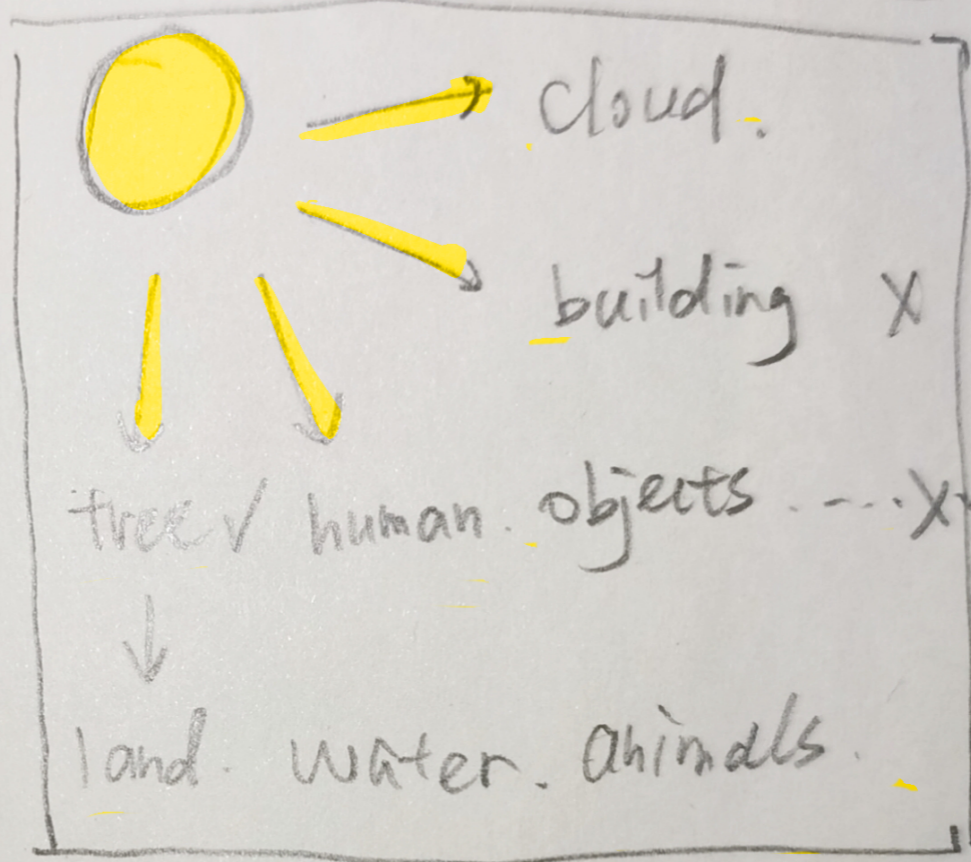 cloud.
building X
tree ✓ human. objects ..... X
land. water. animals.